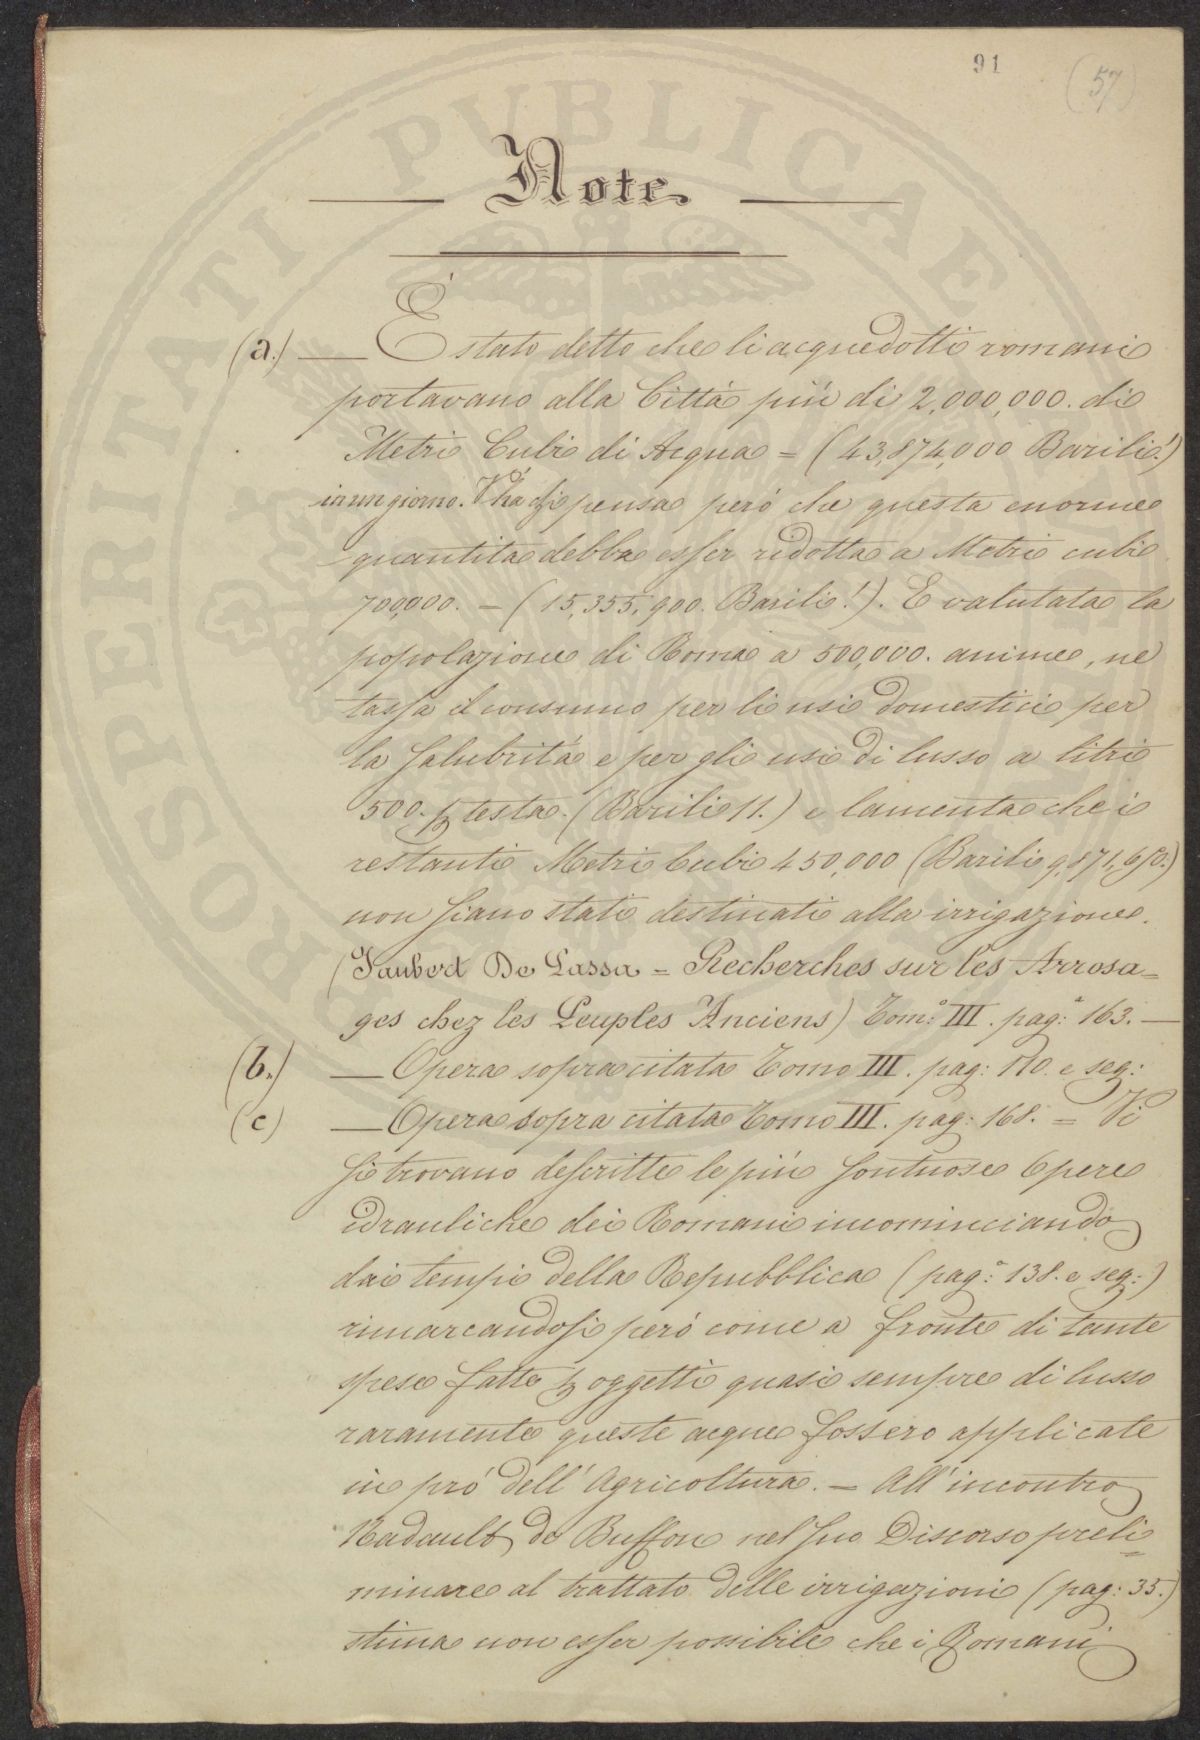 91
(57)
Note.
(a.) — É stato detto che li acquedotti romani
portavano alla Cittá piú di 2,000,000. di
Metri Cubi di Acqua = (43,874,000 Barili!)
in un giorno. V'há chi pensa peró che questa enorme
quantita debba esser ridotta a Metri cubi
700,000. — (15,355,900. Barili!). E valutata la
popolazione di Roma a 500,000. anime, ne
tassa il consumo per li usi domestici per
la salubritá e per gli usi di lusso a litri
500. p testa. (Barili 11.) e lamenta che i
restanti Metri Cubi 450,000 (Barili 9,871,650.)
non siano stati destinati alla irrigazione.
(Jaubert De Passa = Recherches sur les Arrosa=
ges chez les Peuples Anciens) Tom.º III. pag.ª 163. —
(b.) — Opera sopracitata Tomo III. pag: 170. e seg:
(c) — Opera sopra citata Tomo III. pag: 168. = Vi
si trovano descritte le piú sontuose Opere
idrauliche dei Romani incominciando
dai tempi della Repubblica (pag.ª 138. e seg:)
rimarcandosi peró come a fronte di tante
spese fatte p oggetti quasi sempre di lusso
raramente queste acque fossero applicate
in pró dell'Agricoltura. — All'incontro
Nadault de Buffon nel suo Discorso preli=
minare al trattato delle irrigazioni (pag: 35.)
stima non esser possibile che i Romani
PROSPERITATI PUBLICAE